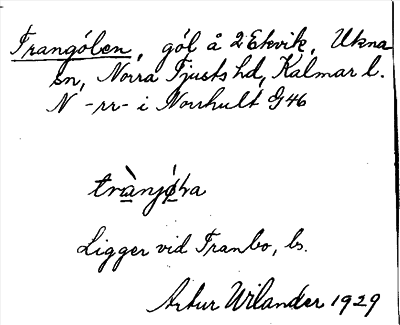 Trangölen, göl å 2 Ekvik, Ukna
sn, Norra Tjusts hd, Kalmar l.
N -rr- i Norrhult G46
Ligger vid Tranbo, ls.
Artur Wilander 1929